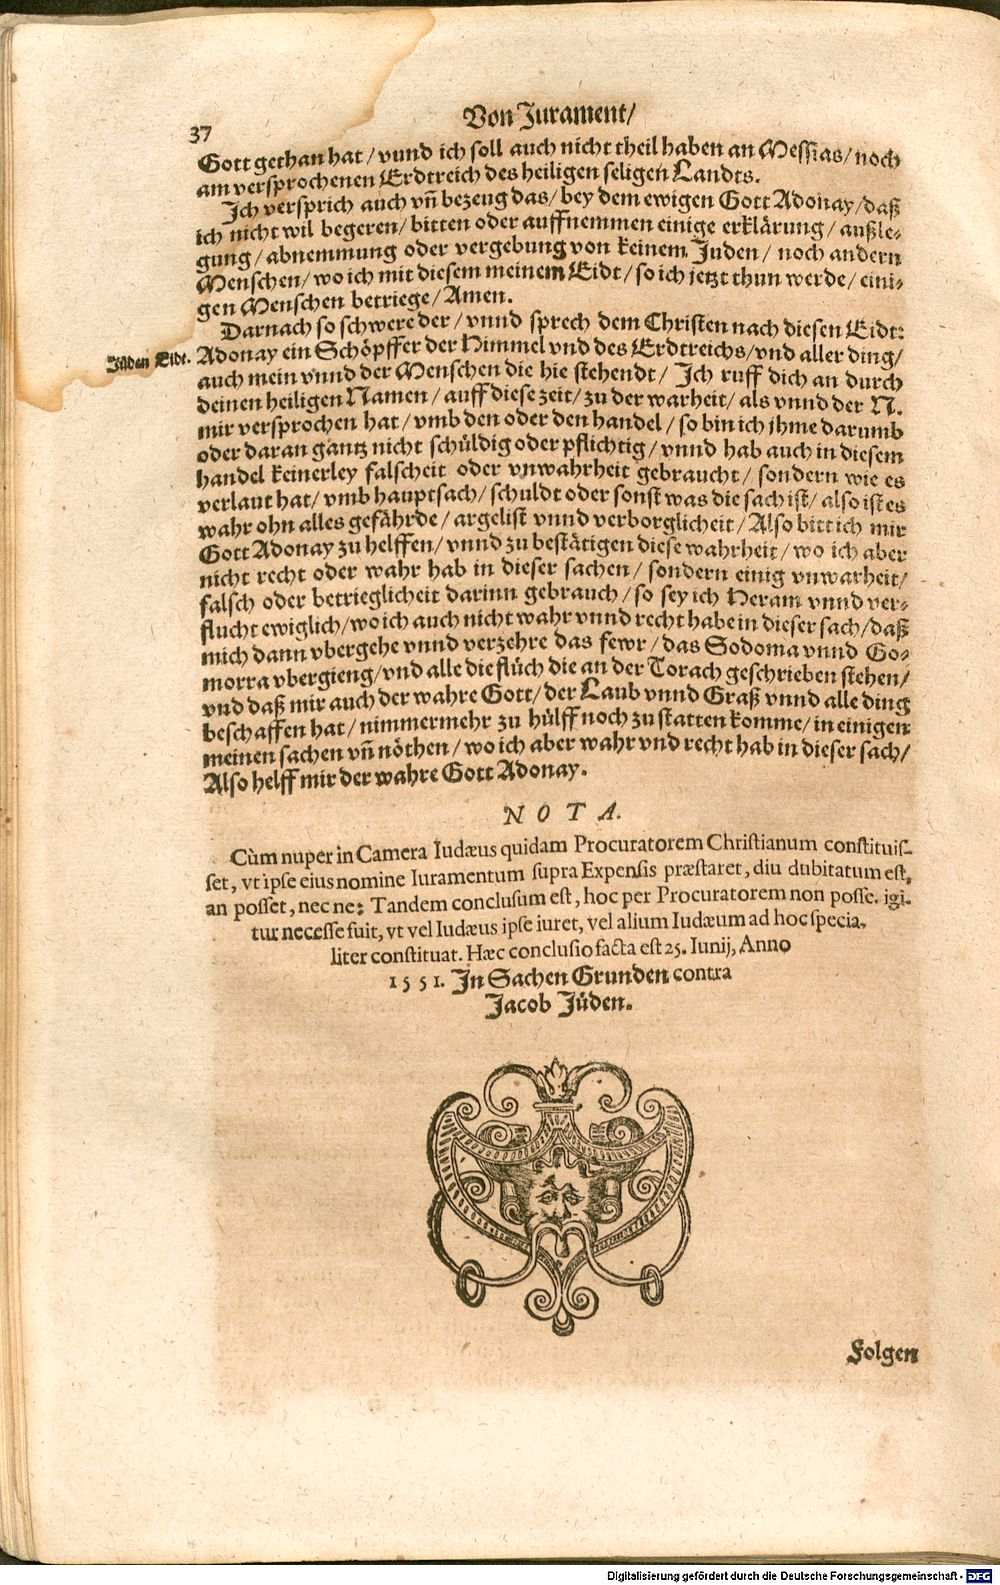 37
Von Jurament/
Gott gethan hat / vund ich soll auch nicht theil haben an Messias / noch
am versprochenen Erdtreich des heiligen seligen Landts.
Ich versprich auch vñ bezeug das / bey dem ewigen Gott Adonay / daß
ich nicht wil begeren / bitten oder auffnemmen einige erklärung / außle-
gung / abnemmung oder vergebung von keinem Juden / noch andern
Menschen / wo ich mit diesem meinem Eidt / so ich jetzt thun werde / eini-
gen Menschen betriege / Amen.
Darnach so schwere der / vnnd sprech dem Christen nach diesen Eidt:
Jüden Eidt.
Adonay ein Schöpffer der Himmel vnd des Erdtreichs / vnd aller ding /
auch mein vnnd der Menschen die hie stehendt / Ich ruff dich an durch
deinen heiligen Namen / auff diese zeit / zu der warheit / als vnnd der N.
mir versprochen hat / vmb den oder den handel / so bin ich jhme darumb
oder daran gantz nicht schüldig oder pflichtig / vnnd hab auch in diesem
handel keinerley falscheit oder vnwahrheit gebraucht / sondern wie es
verlaut hat / vmb hauptsach / schuldt oder sonst was die sach ist / also ist es
wahr ohn alles gefährde / argelist vnnd verborglicheit / Also bitt ich mir
Gott Adonay zu helffen / vnnd zu bestätigen diese wahrheit / wo ich aber
nicht recht oder wahr hab in dieser sachen / sondern einig vnwarheit /
falsch oder betrieglicheit darinn gebrauch / so sey ich Heram vnnd ver-
flucht ewiglich / wo ich auch nicht wahr vnnd recht habe in dieser sach / daß
mich dann vbergehe vnnd verzehre das fewr / das Sodoma vnnd Go-
morra vbergieng / vnd alle die flüch die an der Torach geschrieben stehen /
vnd daß mir auch der wahre Gott / der Laub vnnd Graß vnnd alle ding
beschaffen hat / nimmermehr zu hülff noch zu statten komme / in einigen
meinen sachen vñ nöthen / wo ich aber wahr vnd recht hab in dieser sach /
Also helff mir der wahre Gott Adonay.
NOTA.
Cùm nuper in Camera Iudæus quidam Procuratorem Christianum constituis-
set, vt ipse eius nomine Iuramentum supra Expensis præstaret, diu dubitatum est,
an posset, nec ne: Tandem conclusum est, hoc per Procuratorem non posse. igi-
tur necesse fuit, vt vel Iudæus ipse iuret, vel alium Iudæum ad hoc specia-
liter constituat. Hæc conclusio facta est 25. Iunij, Anno
1551. In Sachen Grunden contra
Jacob Jüden.
Folgen
Digitalisierung gefördert durch die Deutsche Forschungsgemeinschaft - DFG